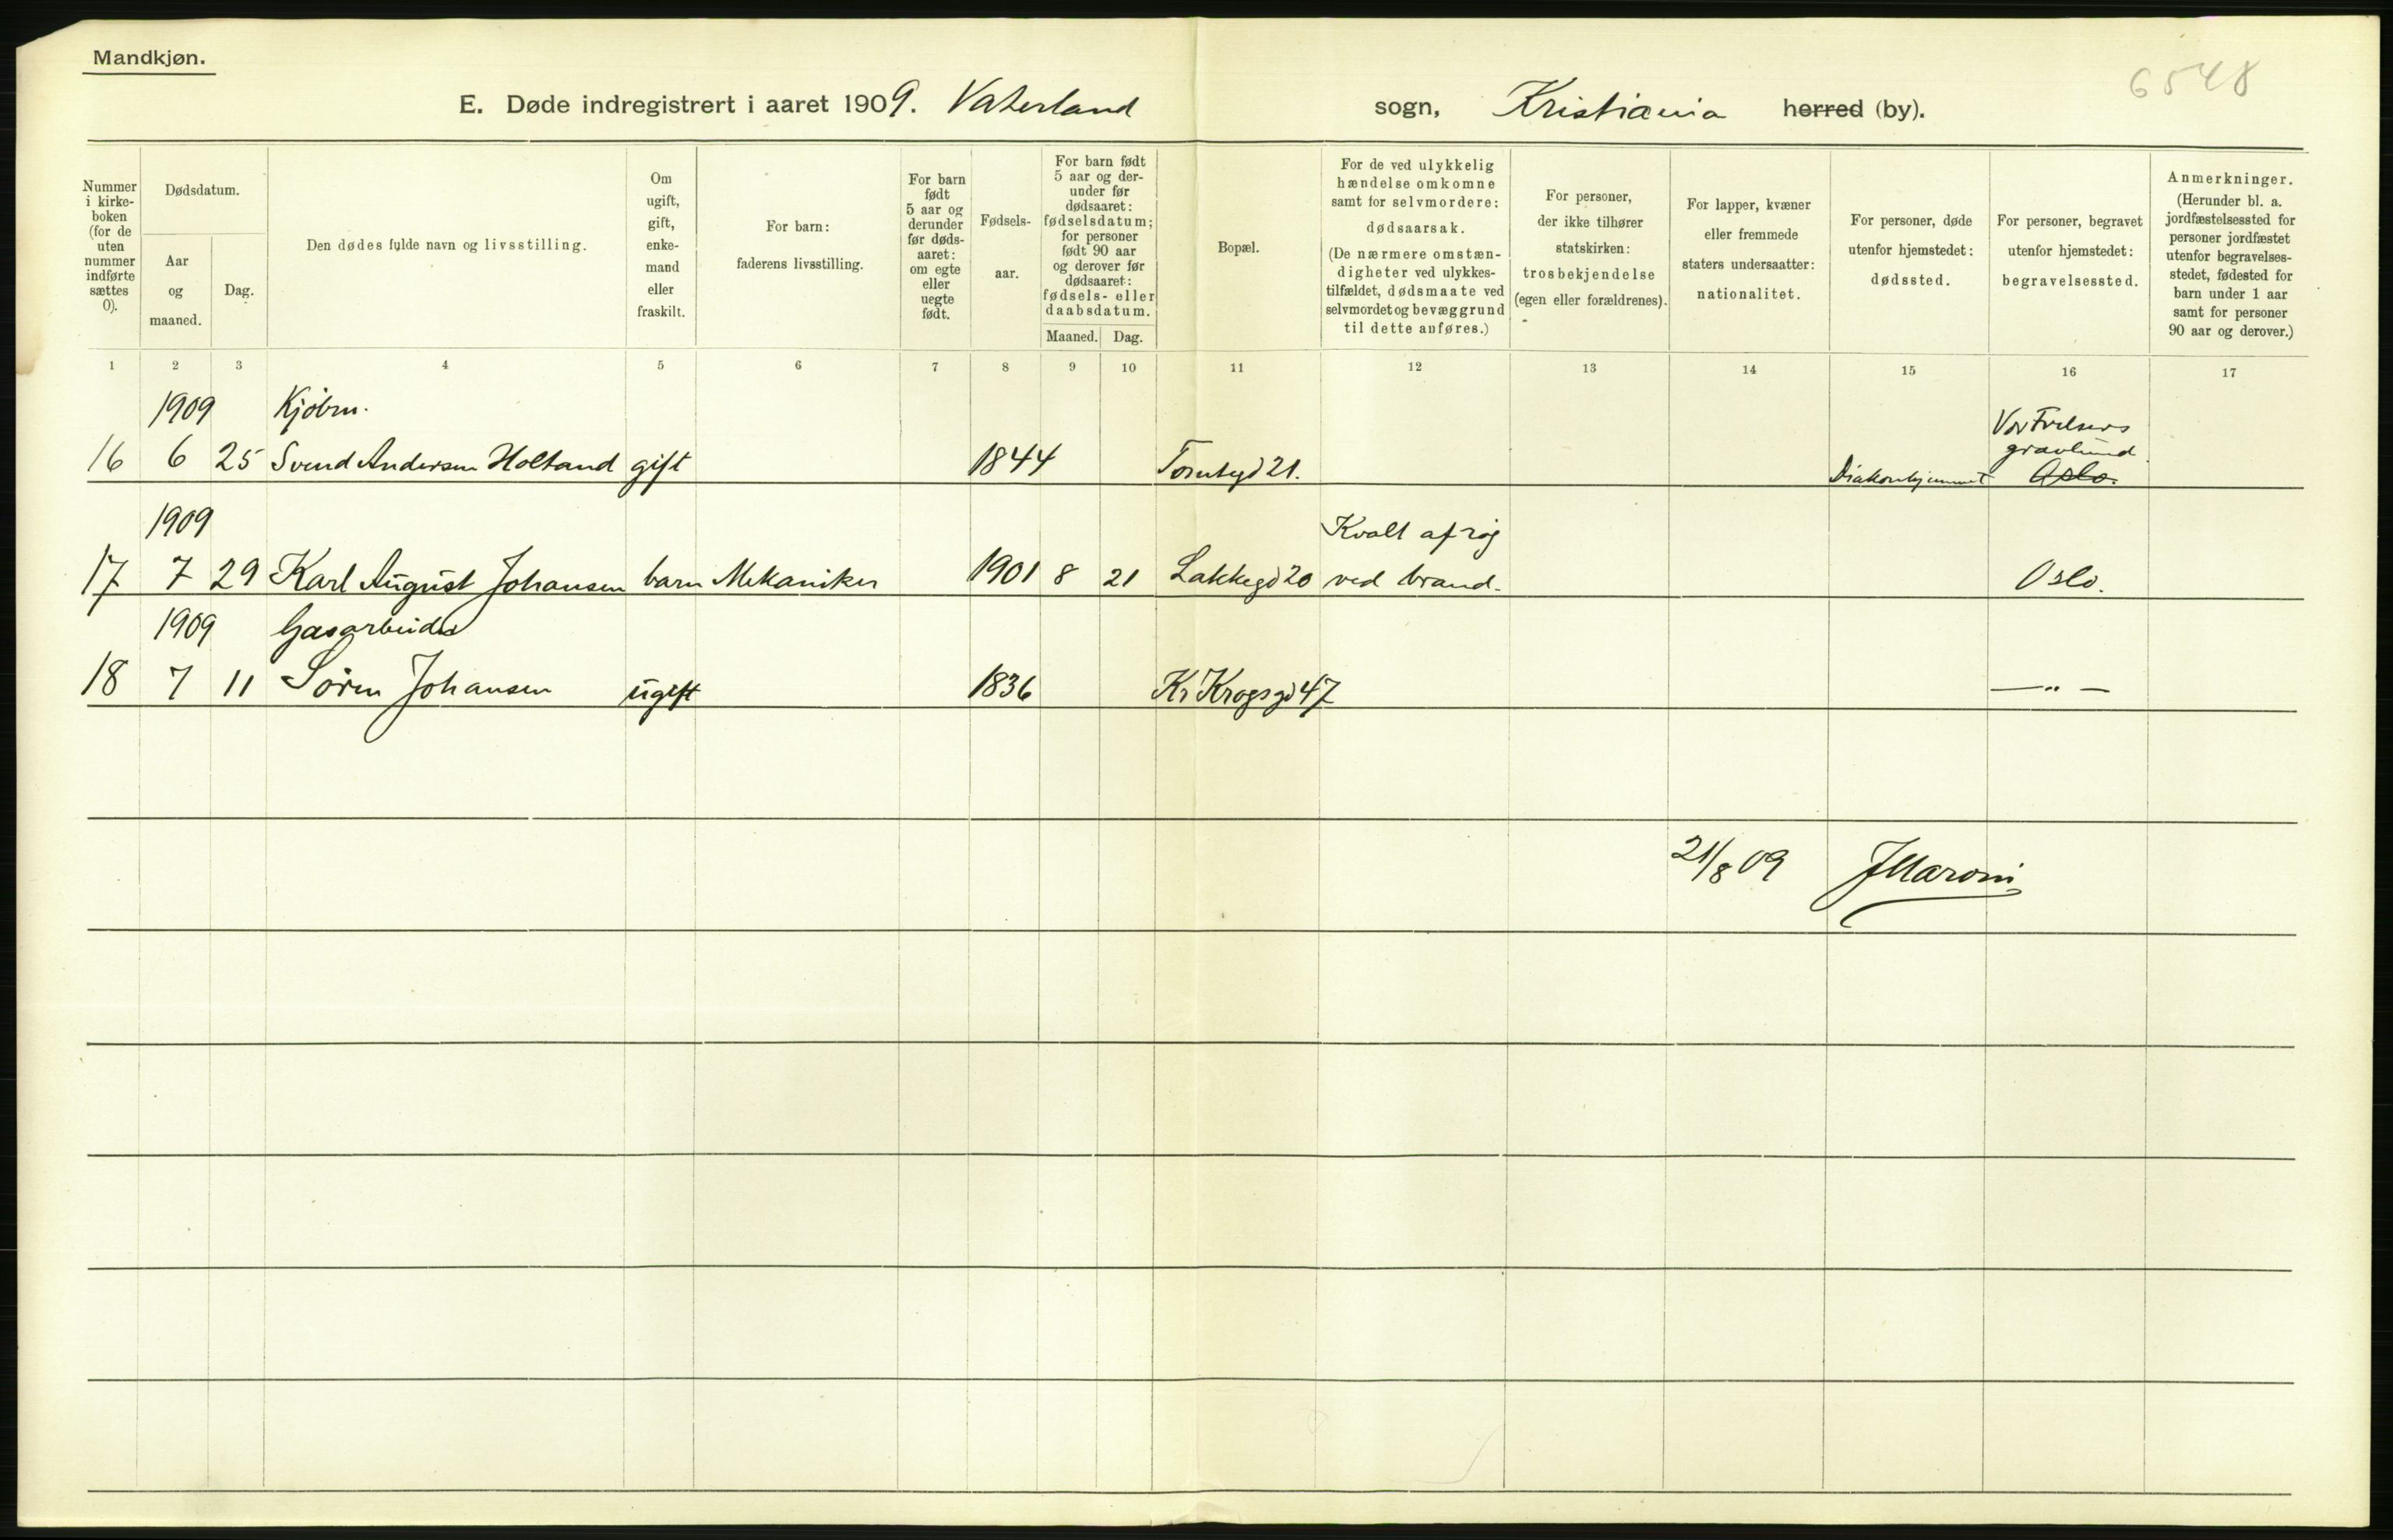 Mandkjøn.
6548
E. Døde indregistrert i aaret 1909. Vaterland sogn, Kristiania herred (by).
Nummer i kirkeboken (for de uten nummer indførte sættes 0).
Dødsdatum.
Aar og maaned.
Dag.
Den dødes fulde navn og livsstilling.
Om ugift, gift, enkemand eller fraskilt.
For barn: faderens livsstilling.
For barn født 5 aar og derunder før dødsaaret: om egte eller uegte født.
Fødselsaar.
For barn født 5 aar og derunder før dødsaaret: fødselsdatum; for personer født 90 aar og derover før dødsaaret: fødsels- eller daabsdatum.
Maaned. Dag.
Bopæl.
For de ved ulykkelig hændelse omkomne samt for selvmordere: dødsaarsak. (De nærmere omstændigheter ved ulykkestilfældet, dødsmaate ved selvmordet og bevæggrund til dette anføres.)
For personer, der ikke tilhører statskirken: trosbekjendelse (egen eller forældrenes).
For lapper, kvæner eller fremmede staters undersaatter: nationalitet.
For personer, døde utenfor hjemstedet: dødssted.
For personer, begravet utenfor hjemstedet: begravelsessted.
Anmerkninger. (Herunder bl. a. jordfæstelsessted for personer jordfæstet utenfor begravelsesstedet, fødested for barn under 1 aar samt for personer 90 aar og derover.)
1 2 3 4 5 6 7 8 9 10 11 12 13 14 15 16 17
1909 Kjøbm. Vor Frelsers gravlund
16 6 25 Svend Andersen Holtand gift 1844 21. Diakonhjemmet Oslo.
1909 Kvalt af røg
17 7 29 Karl August Johansen barn Mekaniker 1901 8 21 Lakkegd 20 ved brand. Oslo.
1909 Gasarbeider
18 7 11 Søren Johansen ugift 1836 Kr Krogsgd 47 —"—
21/8 09 JMaroni